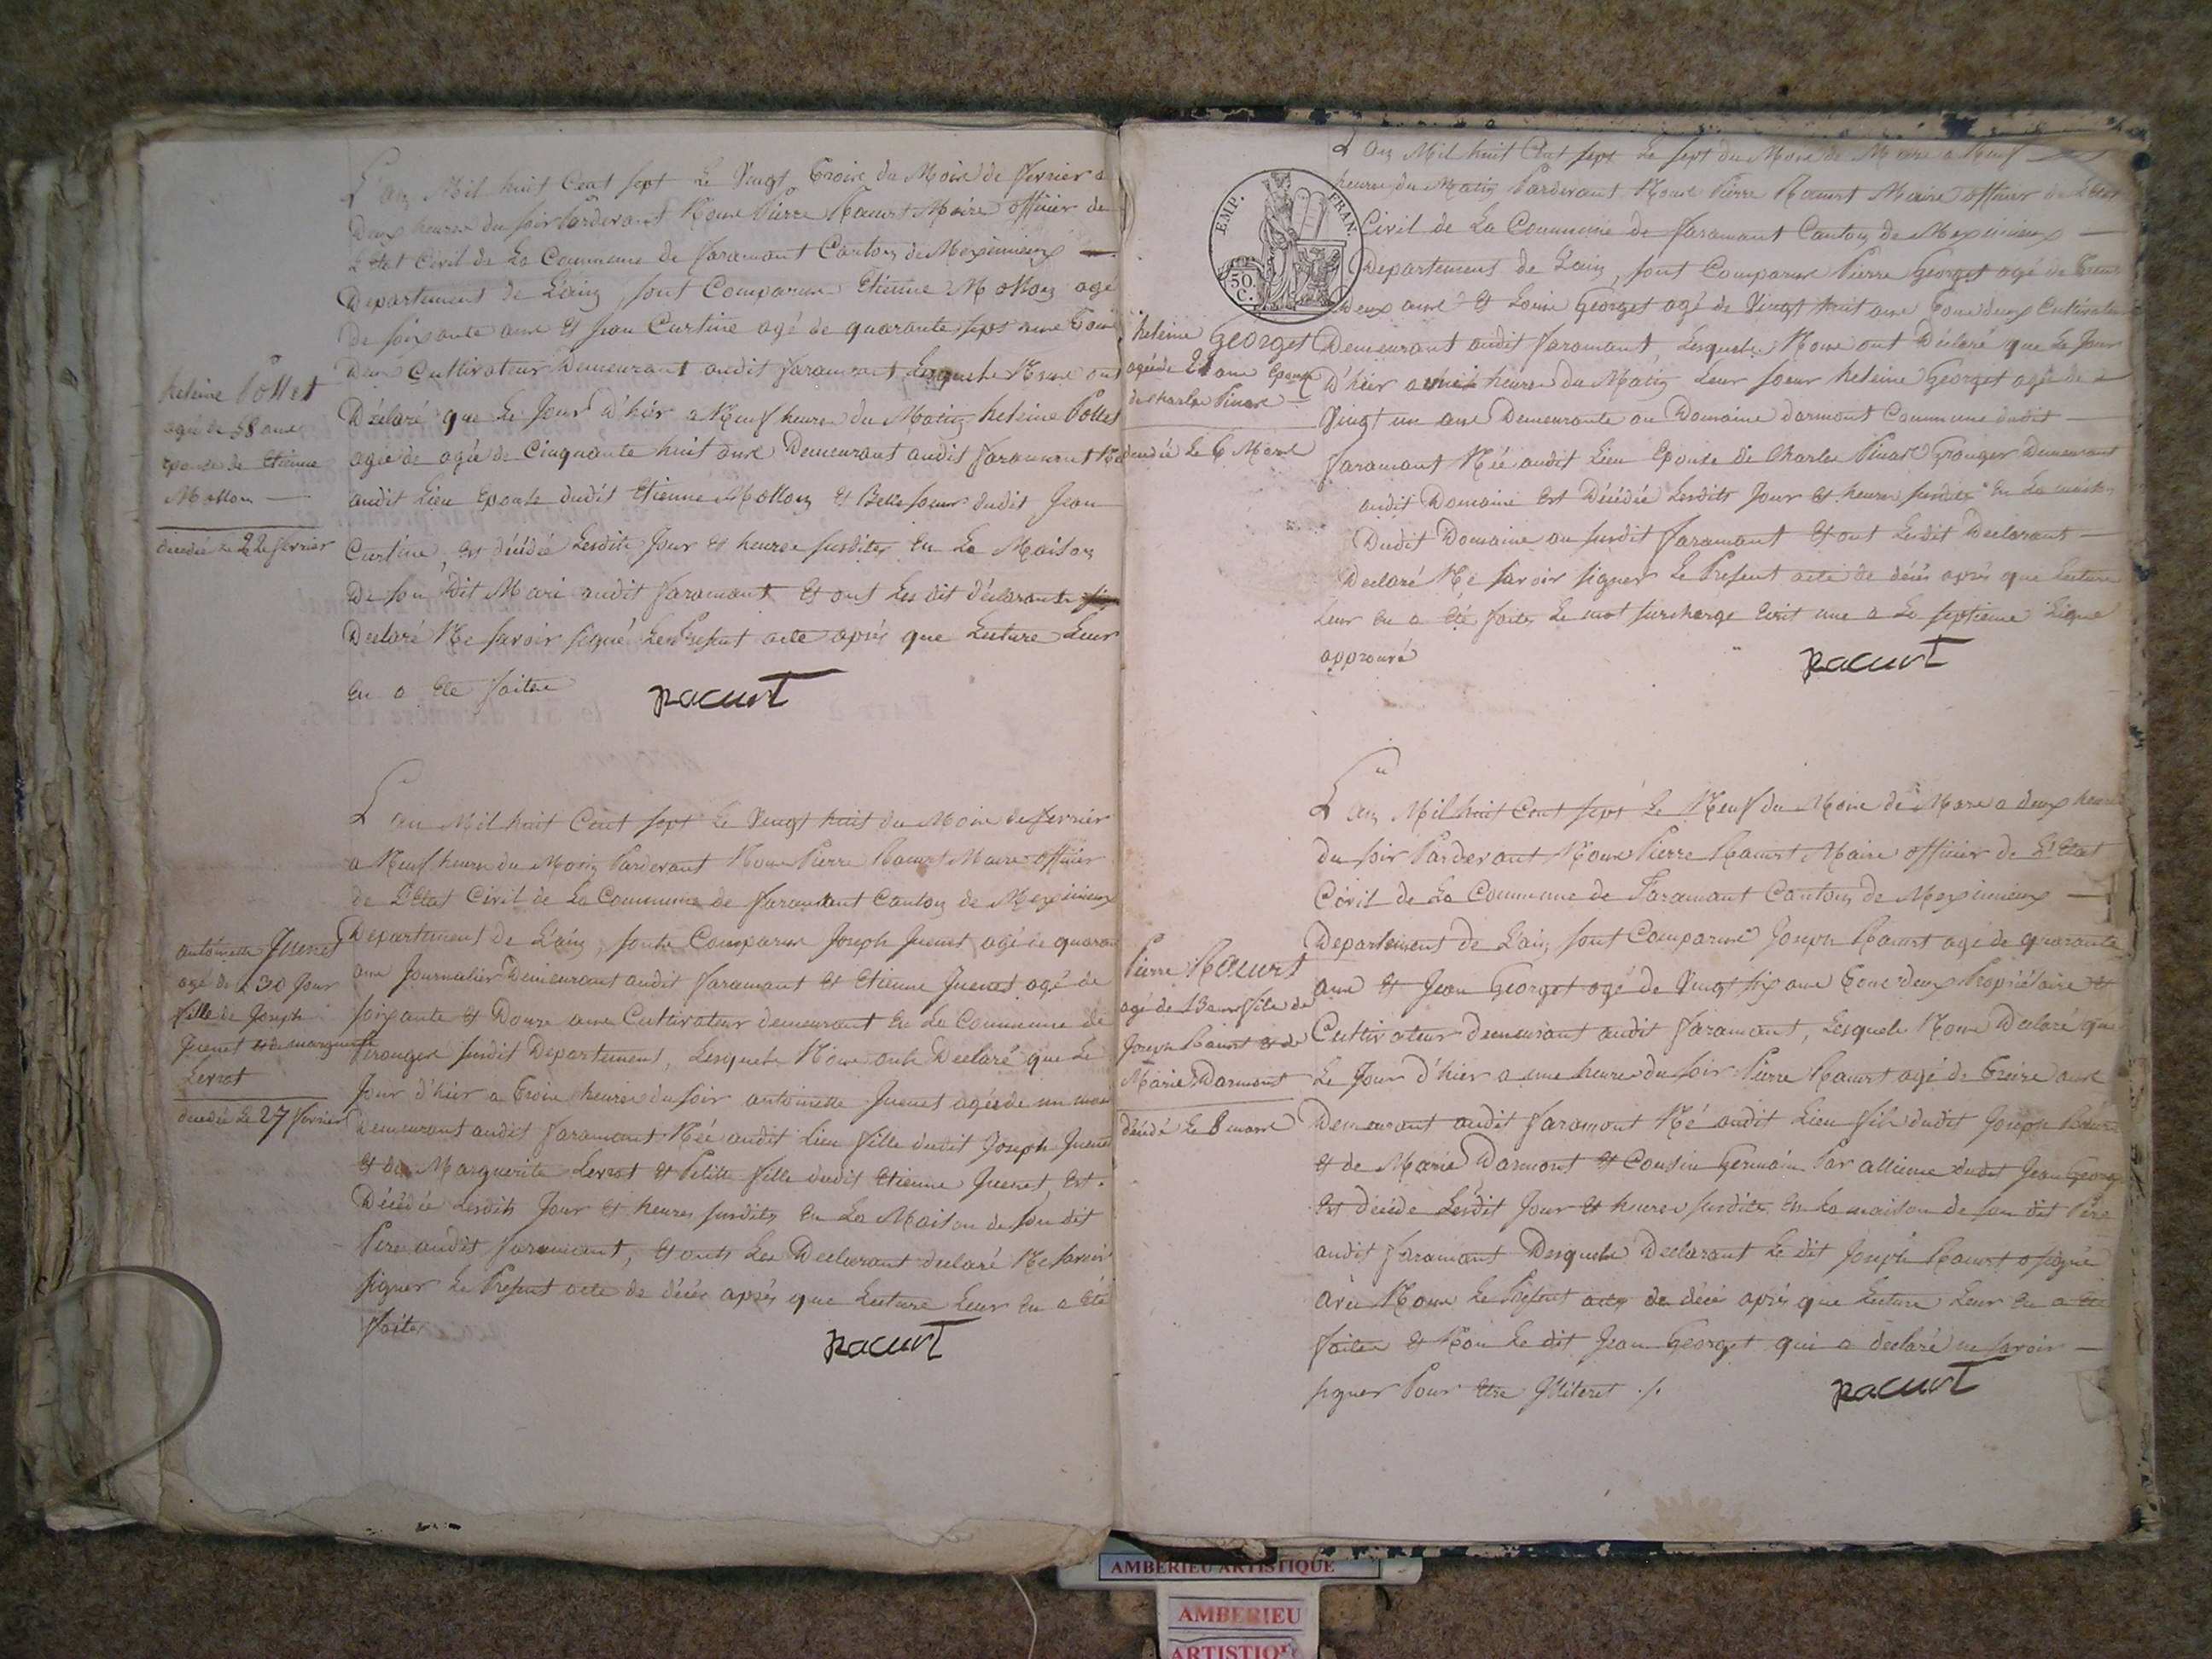 L'an Mil huit Cent sept Le Vingt Troix du Moix de fevrier a
Deux heures du soir Pardevant Nous Pierre Racurt Maire officier de
L'état Civil de La Commune de faramant Canton de Meximieux
Departement de L'ain, sont Comparus Etienne Mollon agé
De soixante ans et Jean Curtine agé de quarante sept ans Tous
Deux Cultivateur Demeurant audit faramant Lesquels Nous ont
Déclaré que Le Jour D'hier a Neuf heures du Matin heleine Pollet
agée de agée de Cinquante huit ans Demeurant audit faramant Née
audit Lieu Epouse dudit Etienne Mollon et Belle soeur dudit Jean
Curtine, est décédée Lesdits Jour et heures susdites en La Maison
De son dit Mari audit faramant et ont Les dit déclarants
Declaré Ne savoir signé Le Present acte aprés que Lecture Leur
en a Eté faitee
Racurt
heleine Pollet
agée de 58 ans
epouse de Etienne
Mollon
decedée le 22 fevrier
L'an Mil huit Cent sept Le Vingt huit du Moix de fevrier
a Neuf heures du Matin Pardevant Nous Pierre Racurt Maire officier
de L'Etat Civil de La Commune de faramant Canton de Meximieux
Departement de L'ain, sont Comparus Joseph Juenet agé de quarante
ans Journalier Demeurant audit faramant et Etienne Juenet agé de
soixante et Douze ans Cultivateur demeurant en La Commune de
Perouges susdit Departement, Lesquels Nous ont Declaré que Le
Jour d'hier a Troix heures du soir antoinette Juenet agée de un mois
Demeurant audit faramant Née audit Lieu fille dudit Joseph Juenet
et de Marguerite Levrat et Petitte fille dudit Etienne Juenet, est
Décédée Lesdits Jour et heures susdites en La Maison de son dit
Pere audit faramant, et onts Les Declarant declaré Ne savoir
signer Le Present acte de décés aprés que Lecture Leur en a été
faite
Racurt
antoinette Juenet
agé de 30 Jour
fille de Joseph
Juenet et de marguerite
Levrat
decedée Le 27 fevrier
EMP. FRAN.
50.
C.
L'an Mil huit Cent sept Le sept du Mois de Mars a Neuf
heures du Matin Pardevant Nous Pierre Racurt Maire officier de L'état
Civil de La Commune de faramant Canton de Meximieux
Departement de L'ain, sont Comparus Pierre Georget agé de Trente
Deux ans et Louis Georget agé de Vingt huit ans Tous deux Cultivateur
Demeurant audit faramant, Lesquels Nous ont Déclaré que Le Jour
D'hier a heures du Matin Leur soeur heleine Georget agée de
Vingt un ans Demeurante au Domaine darmont Commune dudit
faramant Née audit Lieu Epouse de Charles Pinard Granger Demeurant
audit Domaine est Décédée Lesdits Jour et heures susdites en La maison
Dudit Domaine au susdit faramant et ont Lesdit Declarant
Declaré Ne savoir signer Le Present acte de décés aprés que Lecture
Leur en a été faite, Le mot surcharge Ecrit une a La septieme Ligne
approuvé
Racurt
heleine Georget
agée de 21 ans Epouse
de Charles Pinard
decedée Le 6 Mars
L'an Mil huit Cent sept Le Neuf du Mois de Mars a deux heures
du soir Pardevant Nous Pierre Racurt Maire officier de L'Etat
Civil de La Commune de Faramant Canton de Meximieux
Departement de L'ain, sont Comparus Joseph Racurt agé de quarante
ans et Jean Georget agé de Vingt six ans Tous deux Propriétaire et
Cultivateur demeurant audit faramant, Lesquels Nous Declaré que
Le Jour d'hier a une heures du soir Pierre Racurt agé de Treize ans
Demeurant audit faramant Né audit Lieu fils dudit Joseph Racurt
et de Marie Darmont et Cousin Germain Par alliance dudit Jean Georget
est décéde Lesdit Jour et heures susdites en La maison de son dit Pere
audit faramant Desquels Declarant Le dit Joseph Racurt a signé
avec Nous Le Present acte de décés aprés que Lecture Leur en a été
faitee et Non Le dit Jean Georget qui a declaré ne savoir
signer Pour Etre Jlliteret ./.
Racurt
Pierre Racurt
agé de 13 ans fils de
Joseph Racurt et de
Marie Darmont
décédé Le 8 mars
AMBERIEU ARTISTIQUE
AMBERIEU
ARTISTIQUE